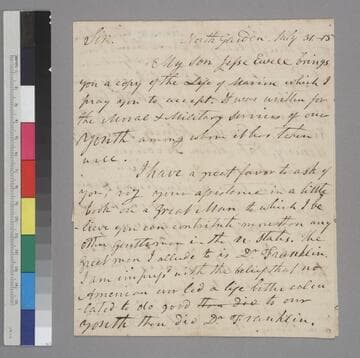 Sir. North Garden July 31-15
My Son Jesse Ewell brings
you a copy of the Life of Marion which I
pray you to accept. It was written for
the Moral & Military services of our
Youth among whom it has taken
well.
I have a great favor to ask of
you, viz your assistance in a little
book on a Great Man to which I be
lieve you can contribute more than any
other Gentleman in the U States. The
great man I allude to is Dr Franklin.
I am impressd with the belief that no
American ever led a life better calcu
lated to do good than did to our
youth than did Dr Franklin.